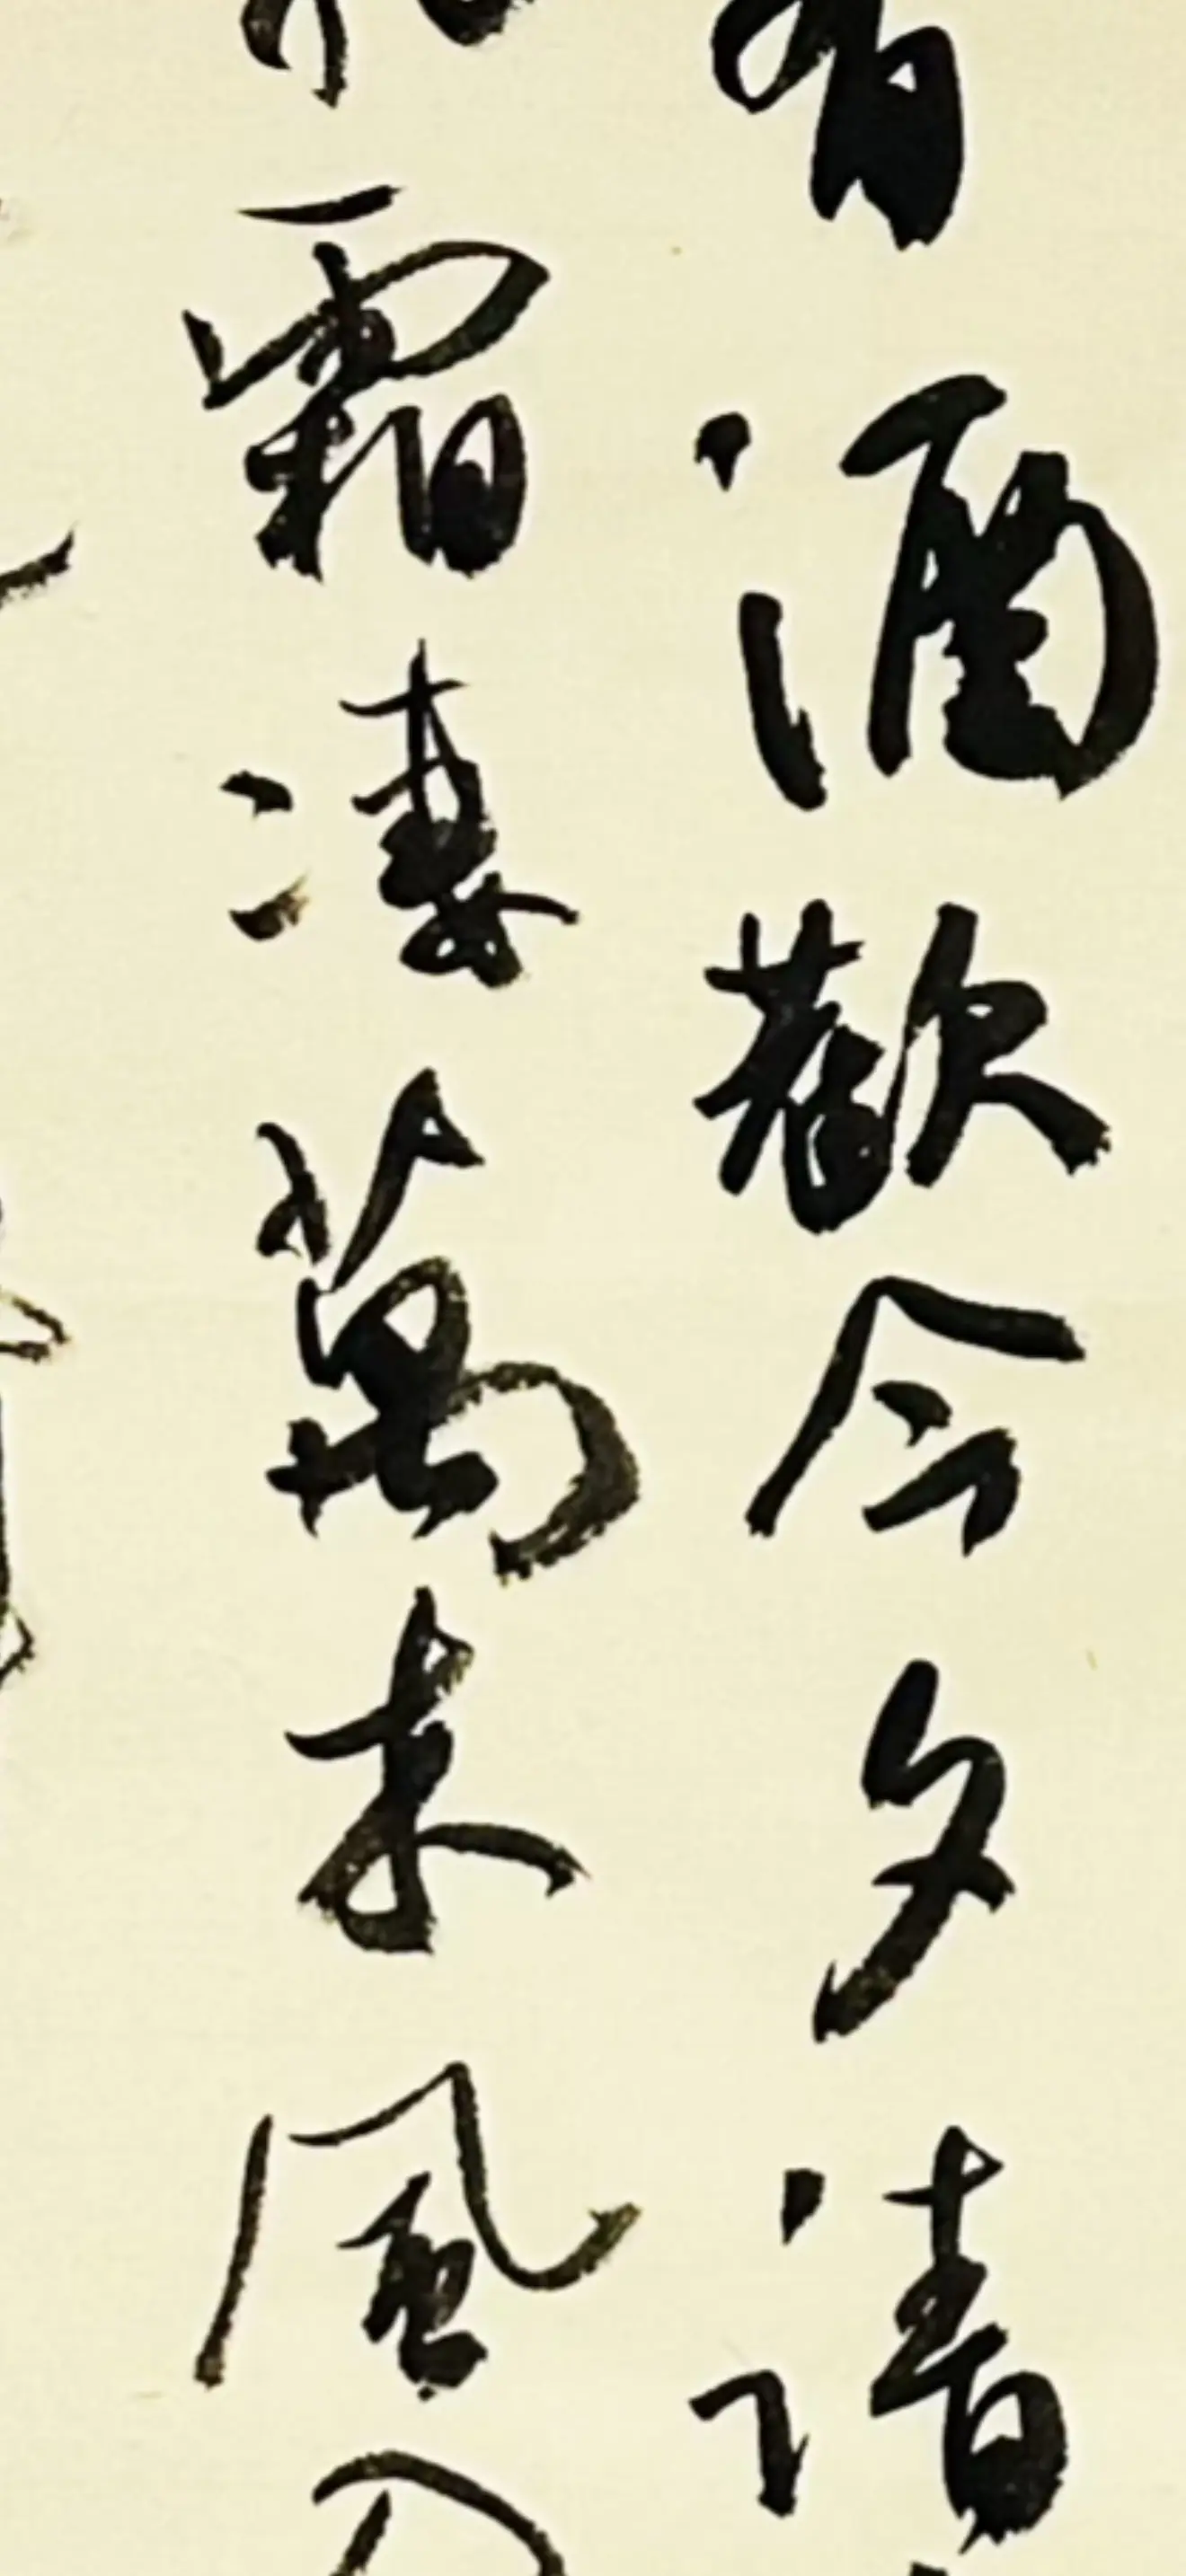 有酒歡今夕請
霜凄萬木風入